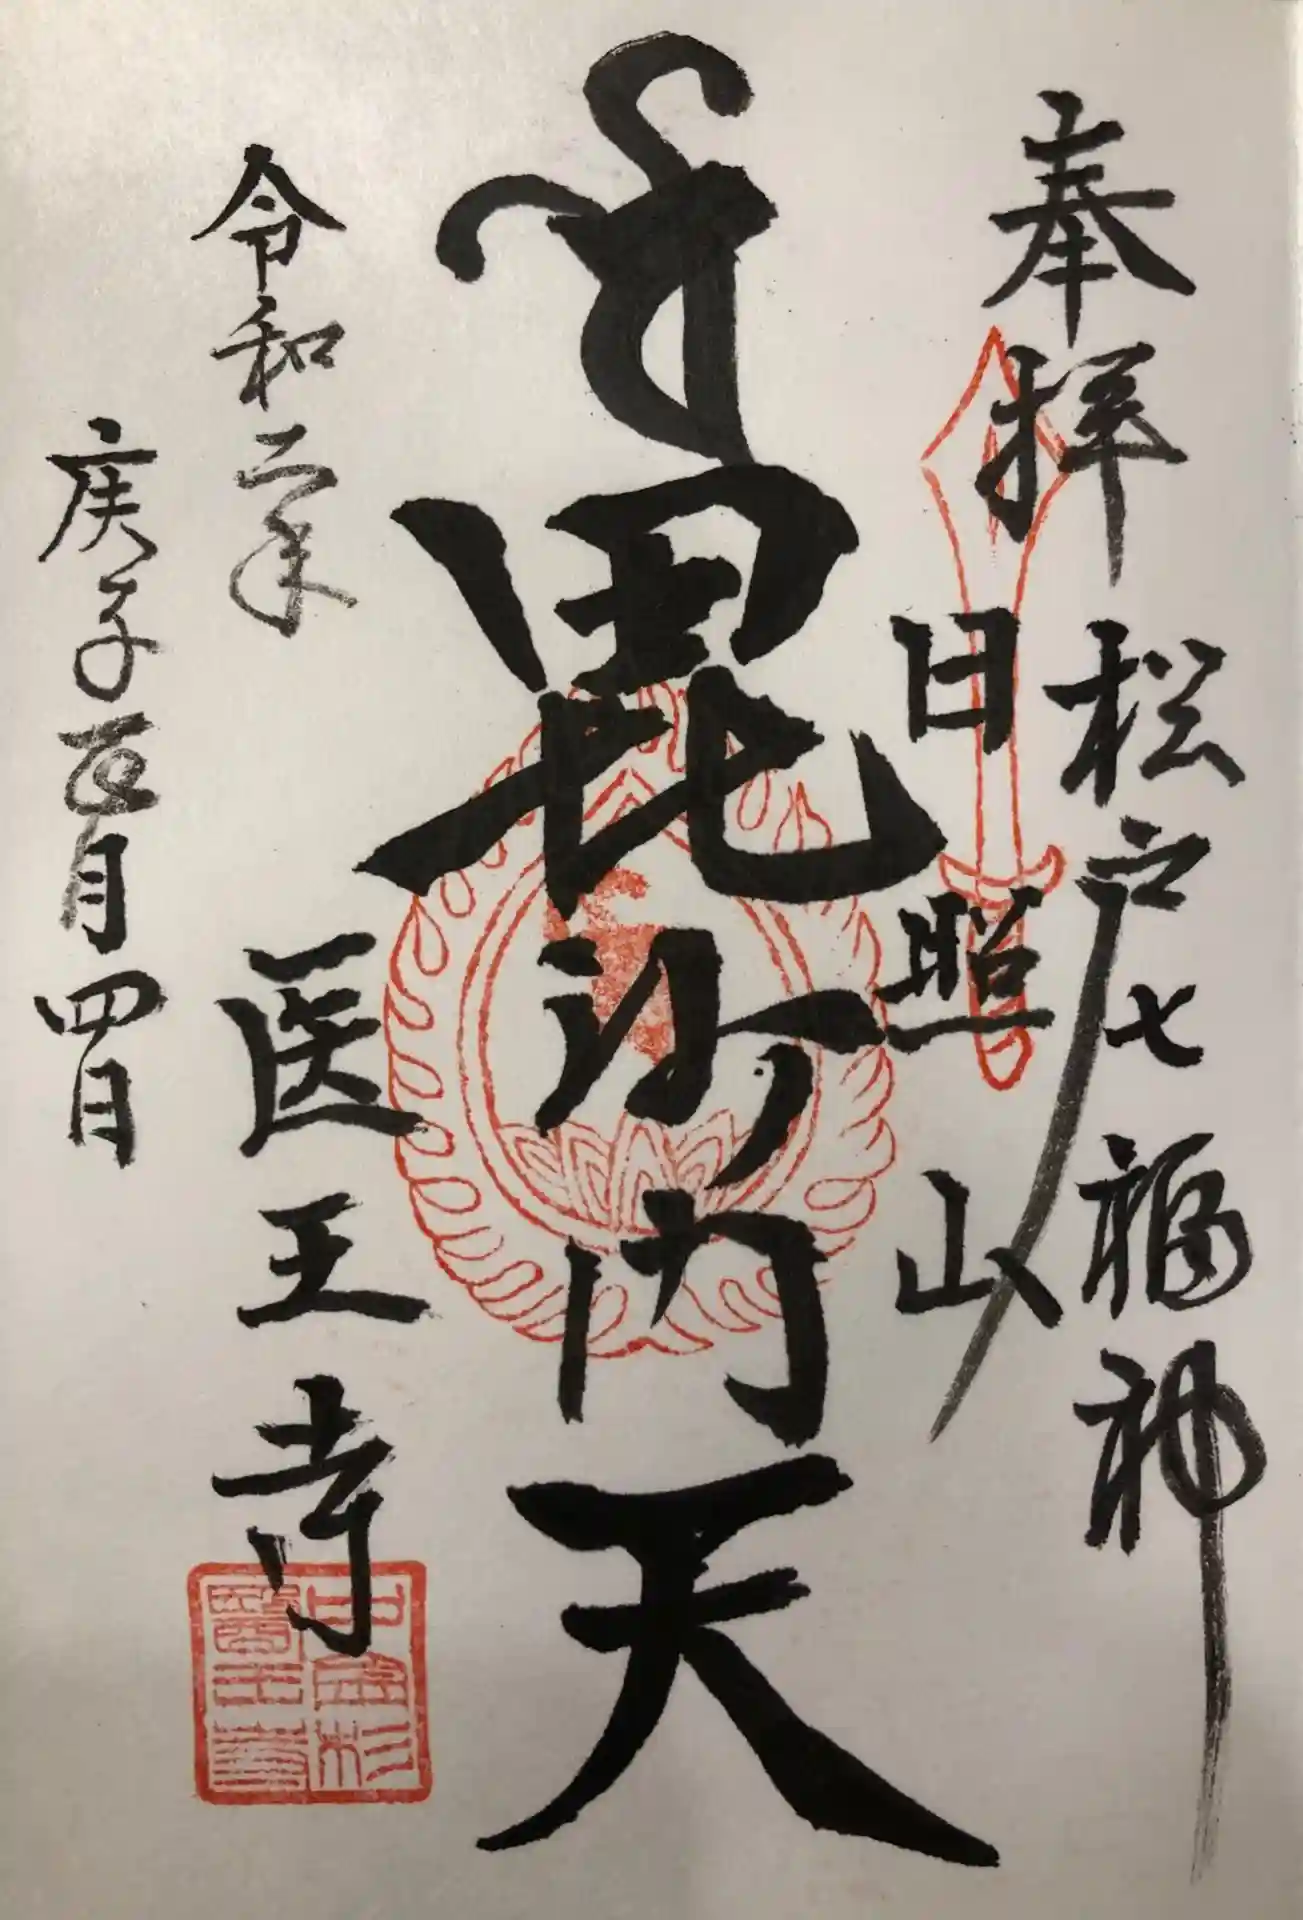 奉拝
松戸七福神
日照山
毘沙門天
医王寺
令和二年
庚子五月四日